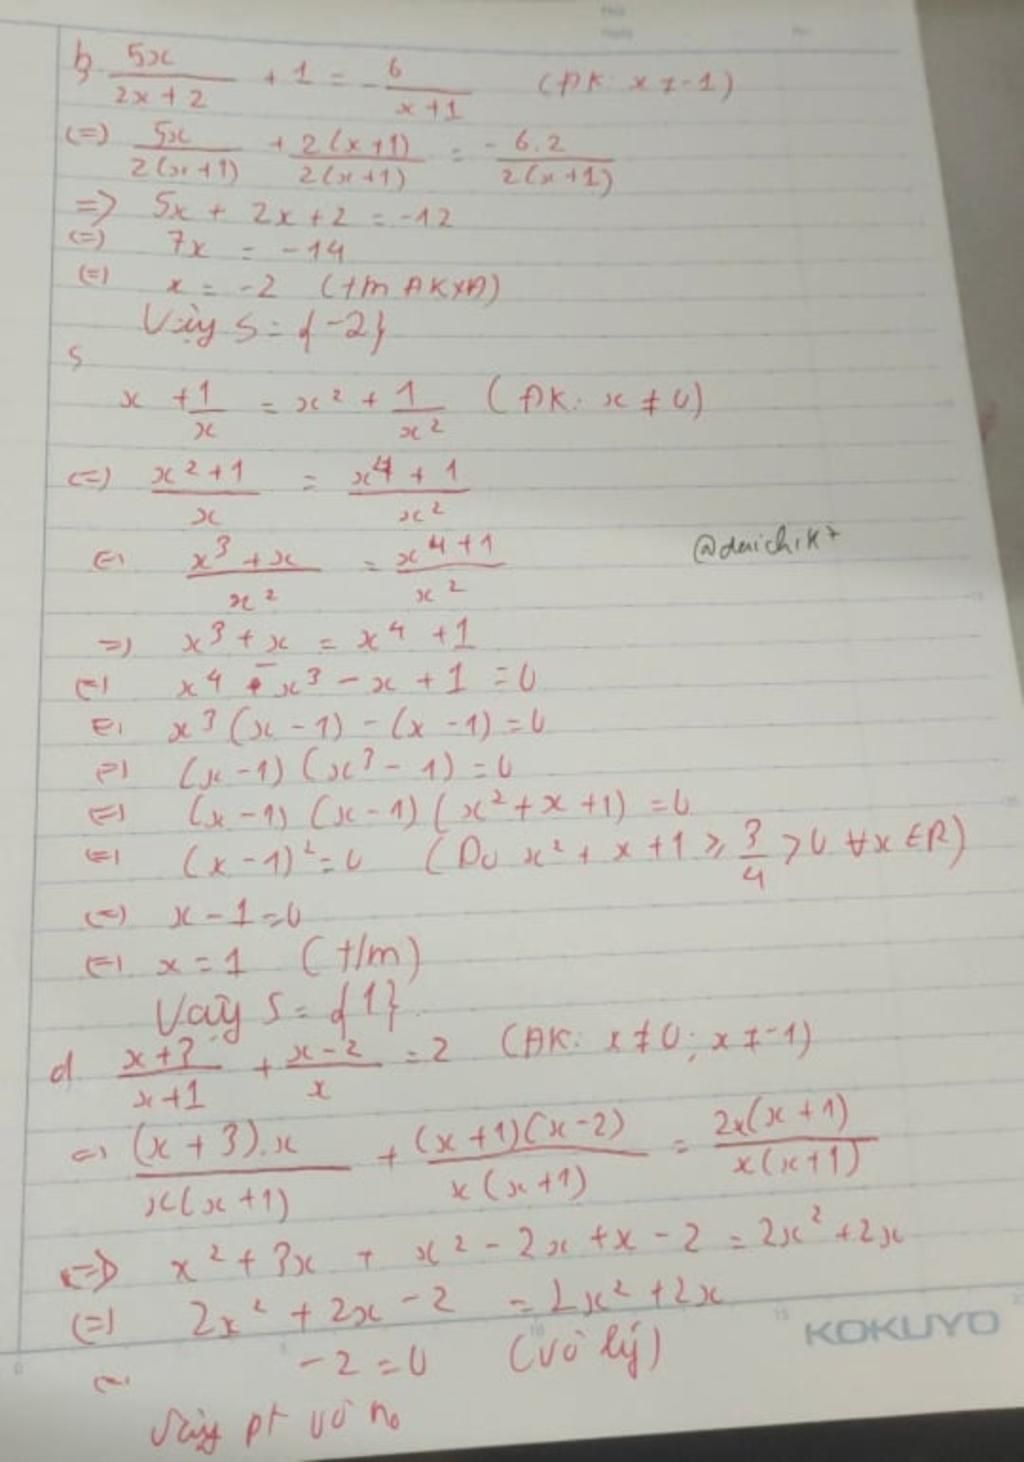 b, 5x/(2x+2) + 1 = -6/(x+1) (ĐK: x ≠ -1)
(=) 5x/(2(x+1)) + 2(x+1)/(2(x+1)) = -6.2/(2(x+1))
=> 5x + 2x + 2 = -12
(=) 7x = -14
(=) x = -2 (t/m ĐKXĐ)
Vậy S = {-2}
c
x + 1/x = x² + 1/x² (ĐK: x ≠ 0)
(=) (x²+1)/x = (x⁴+1)/x²
(=) (x³+x)/x² = (x⁴+1)/x²
@daichik7
=) x³ + x = x⁴ + 1
(=) x⁴ - x³ - x + 1 = 0
(=) x³(x-1) - (x-1) = 0
(=) (x-1)(x³-1) = 0
(=) (x-1)(x-1)(x²+x+1) = 0
(=) (x-1)² = 0 (Do x² + x + 1 ≥ 3/4 > 0 ∀x ∈ R)
(=) x - 1 = 0
(=) x = 1 (t/m)
Vậy S = {1}
d (x+3)/(x+1) + (x-2)/x = 2 (ĐK: x ≠ 0; x ≠ -1)
=) (x+3).x/(x(x+1)) + (x+1)(x-2)/(x(x+1)) = 2x(x+1)/(x(x+1))
<=> x² + 3x + x² - 2x + x - 2 = 2x² + 2x
(=) 2x² + 2x - 2 = 2x² + 2x
(=) -2 = 0 (vô lý)
Vậy pt vô no
KOKUYO